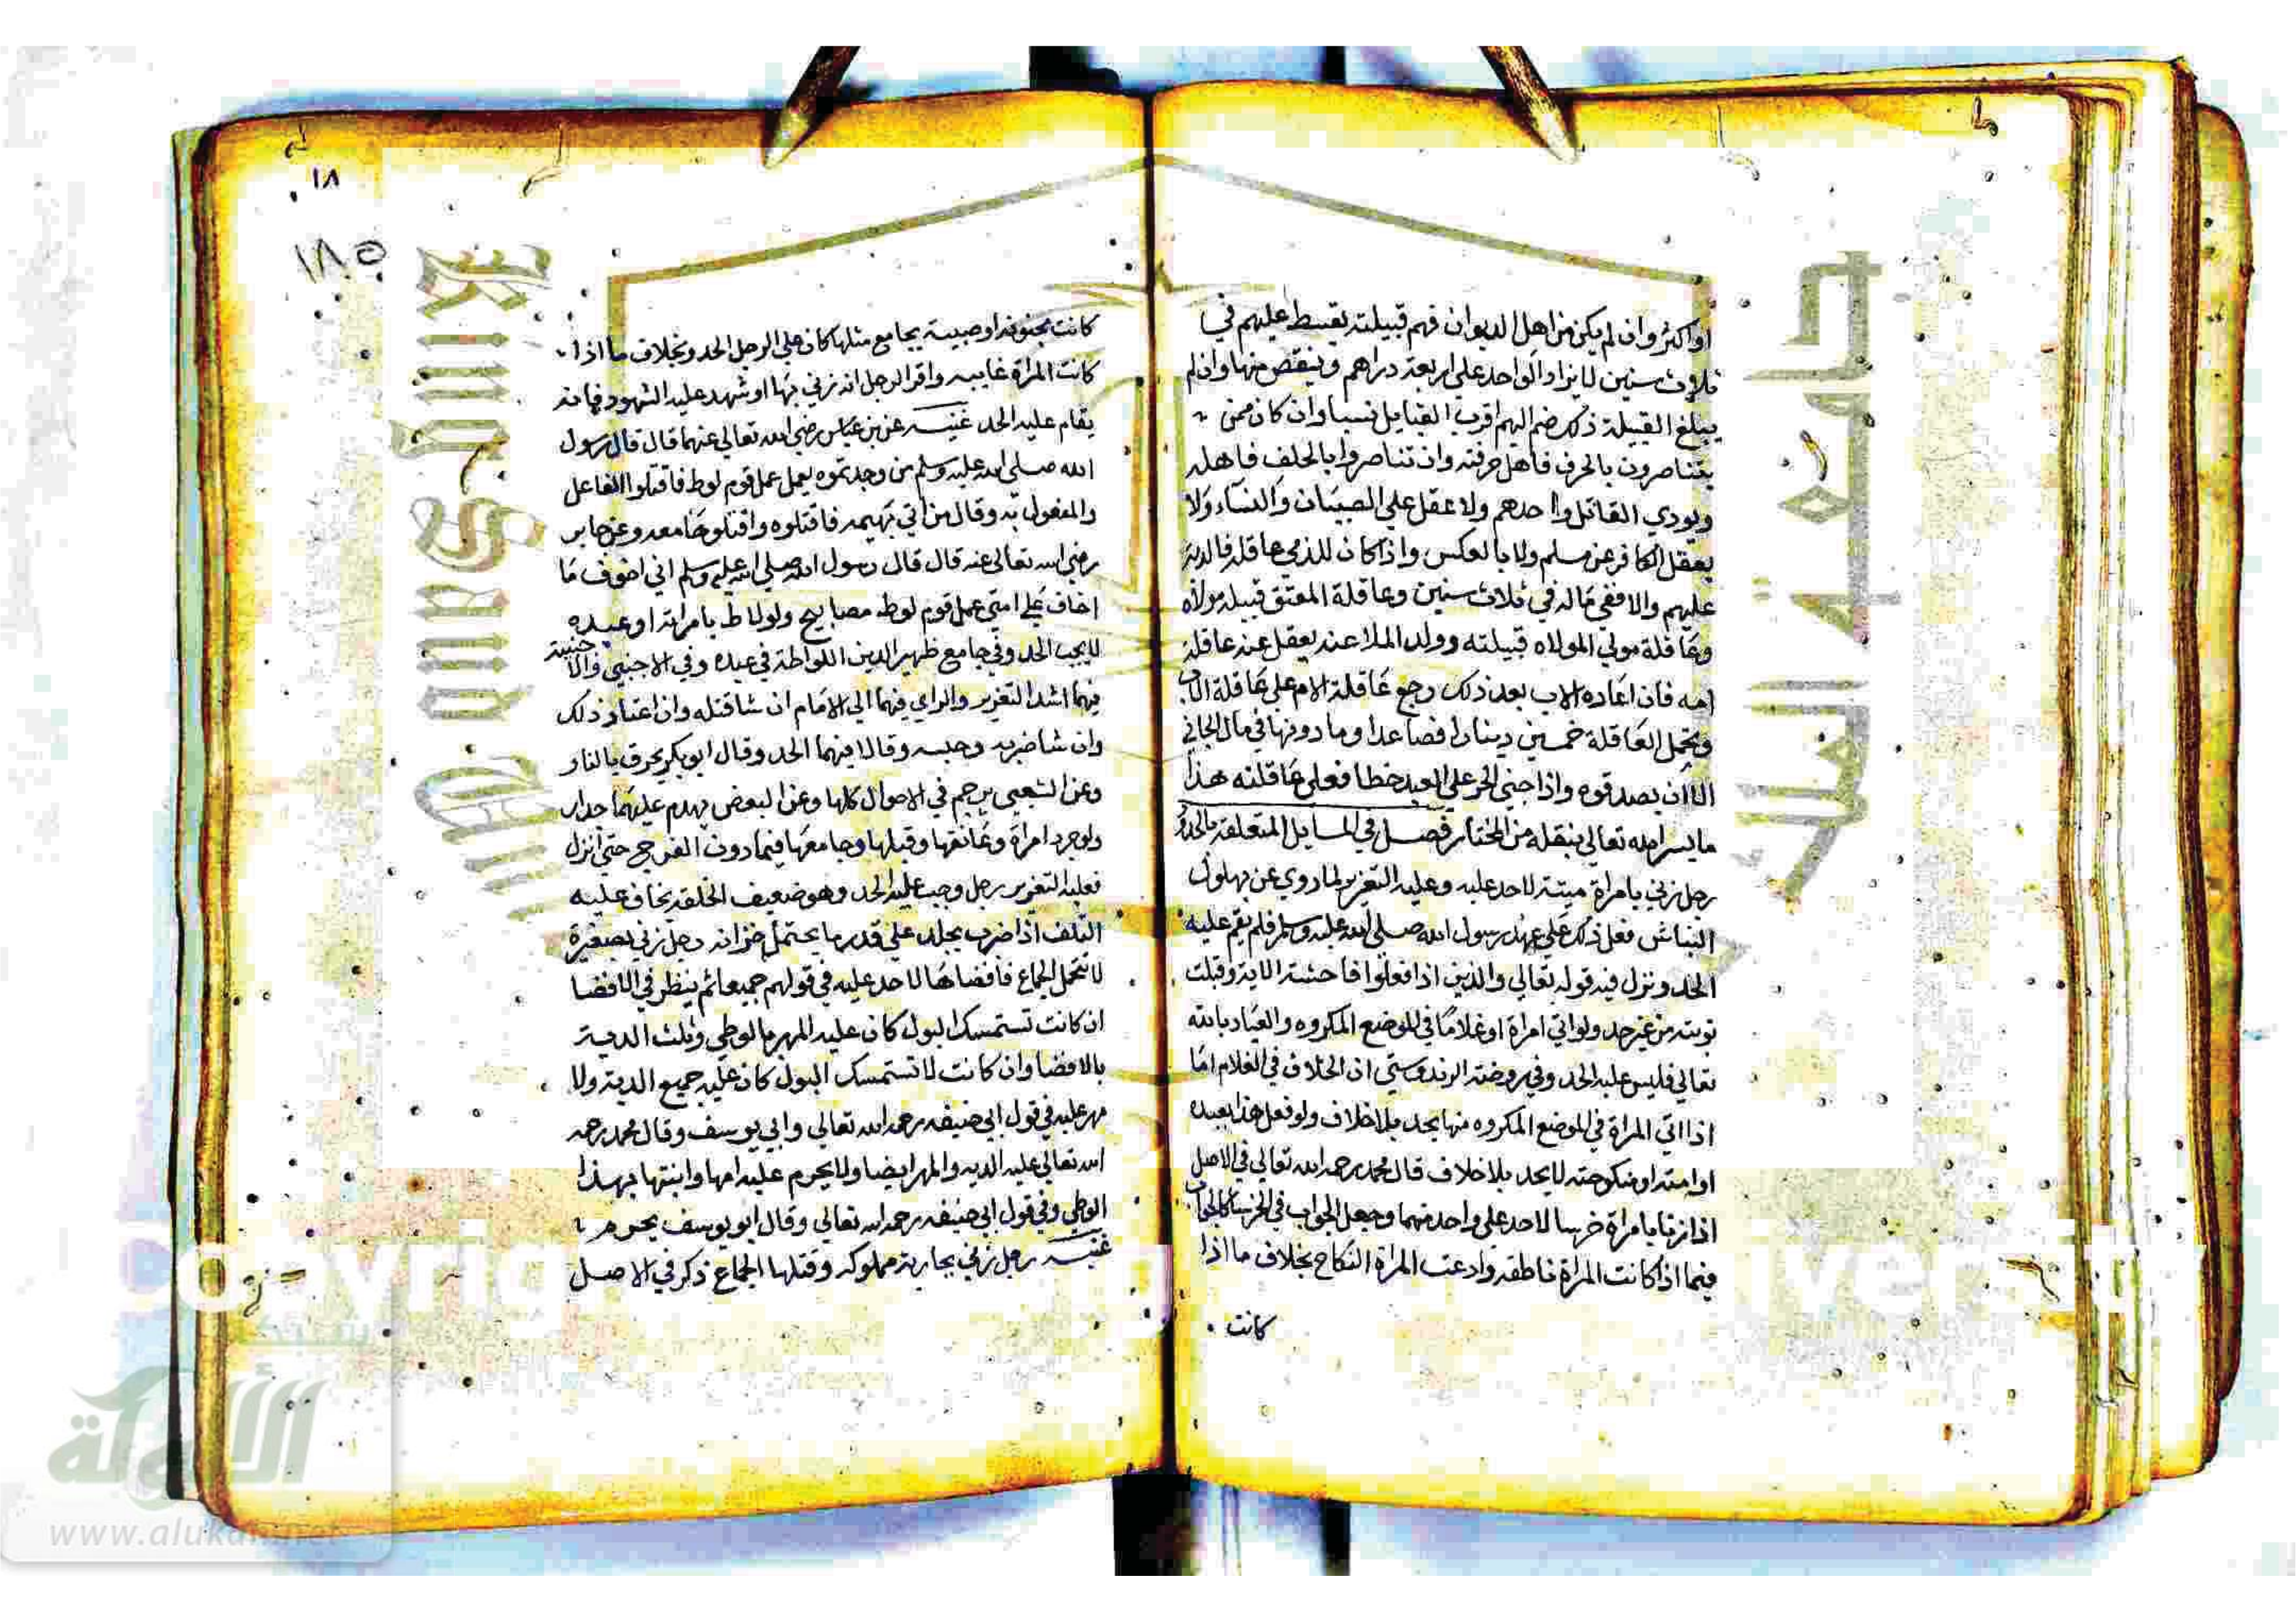 او اكثر وان لم يكن من اهل الديوان فهم قبيلته يقسط عليهم في
ثلاث سنين لا يزاد الواحد على اربعة دراهم وينقص منها وان لم
يبلغ القبيلة ذلك ضم اليهم اقرب القبايل نسبا وان كان ممن
يتناصرون بالحرف فاهل حرفته وان تناصروا بالحلف فاهله
ويودي القاتل واحدهم ولا عقل علي الصبيان والنساء ولا
يعقل الكافر عن مسلم ولا بالعكس واذا كان للذمي عاقلة فالدية
عليهم والا ففي ماله في ثلاث سنين وعاقلة المعتق قبيلة مولاه
وعاقلة مولي المولاه قبيلته وولد الملاعنه يعقل عنه عاقلة
امه فان اعاده الاب بعد ذلك رجع عاقلة الام على عاقلة الاب
وتحمل العاقلة خمسين دينارا فصاعدا وما دونها في مال الجاني
الا ان يصدقوه واذا جني الحر علي العبد خطا فعلي عاقلته هذا
ما يسر الله تعالي بنقله من المختار فصل في المسايل المتعلقة بالحدود
رجل زني بامراة ميتة لا حد عليه وعليه التعزير لما روي عن بهلول
النباش فعل ذلك علي عهد رسول الله صلي الله عليه وسلم فلم يقم عليه
الحد ونزل فيه قوله تعالي والذين اذا فعلوا فاحشة الاية وقبلت
توبته من غير حد ولو اتي امراة او غلاما في الموضع المكروه والعياد بالله
تعالي فليس عليه الحد وفي روضة الزندوستي ان الخلاف في الغلام اما
اذا اتي المراة في الموضع المكروه منها يحد بلا خلاف ولو فعل هذا بعبده
او امته او منكوحته لا يحد بلا خلاف قال محمد رحمه الله تعالي في الاصل
اذا زنا بامراة خرسا لا حد على واحد منهما وجعل الجواب في الخرسا كالجواب
فيما اذا كانت المراة ناطقة وادعت المراة النكاح بخلاف ما اذا
كانت
١٨
١٨٥
كانت مجنونة او صبية يجامع مثلها كان علي الرجل الحد وبخلاف ما اذا
كانت المراة غايبه واقر الرجل انه زني بها او شهد عليه الشهود فانه
يقام عليه الحد غنيه عن بن عباس رضي الله تعالي عنهما قال قال رسول
الله صلى الله عليه وسلم من وجدتموه يعمل عمل قوم لوط فاقتلوا الفاعل
والمفعول به وقال من اتي بهيمه فاقتلوه واقتلوها معه وعن جابر
رضي الله تعالى عنه قال قال رسول الله صلي الله عليه وسلم اني اخوف ما
اخاف علي امتي عمل قوم لوط مصابيح ولو لاط بامراته او عبده
لا يجب الحد وفي جامع ظهير الدين اللواطة في عبده وفي الاجنبي والاجنبية
فيهما اشد التعزير والراي فيهما الي الامام ان شا قتله وان اعتاد ذلك
وان شا ضربه وحبسه وقالا فيهما الحد وقال ابو بكر يحرق بالنار
وعن الشعبي يرجم في الاحوال كلها وعن البعض يهدم عليهما جدار
ولو جرد امراة وعانقها وقبلها وجامعها فيما دون الفرج حتي انزل
فعليه التعزير رجل وجب عليه الحد وهو ضعيف الخلقة يخاف عليه
التلف اذا ضرب يجلد علي قدر ما يحتمل خزانه رجل زني بصغيرة
لا تتحمل الجماع فافضاها لا حد عليه في قولهم جميعا ثم ينظر في الافضا
ان كانت تستمسك البول كان عليه المهر بالوطي وثلث الدية
بالافضا وان كانت لا تستمسك البول كان عليه جميع الدية ولا
مهر عليه في قول ابي حنيفه رحمه الله تعالي وابي يوسف وقال محمد رحمه
الله تعالي عليه الديه والمهر ايضا ولا يحرم عليه امها وابنتها بهذا
الوطي وفي قول ابي حنيفه رحمه الله تعالي وقال ابو يوسف يحرم
غنيه رجل زني بجارية مملوكه وقتلها الجماع ذكر في الاصل
جامعة الملك
شبكة
الألوكة
www.alukah.net